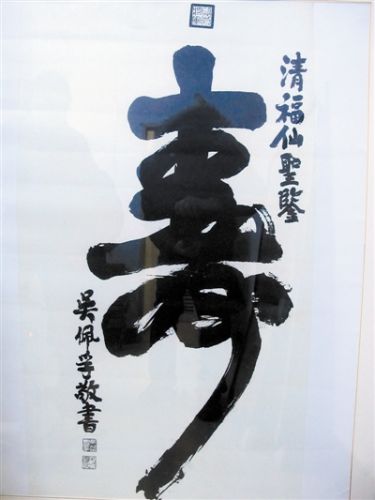 清福仙聖鑒
壽
吳佩孚敬書